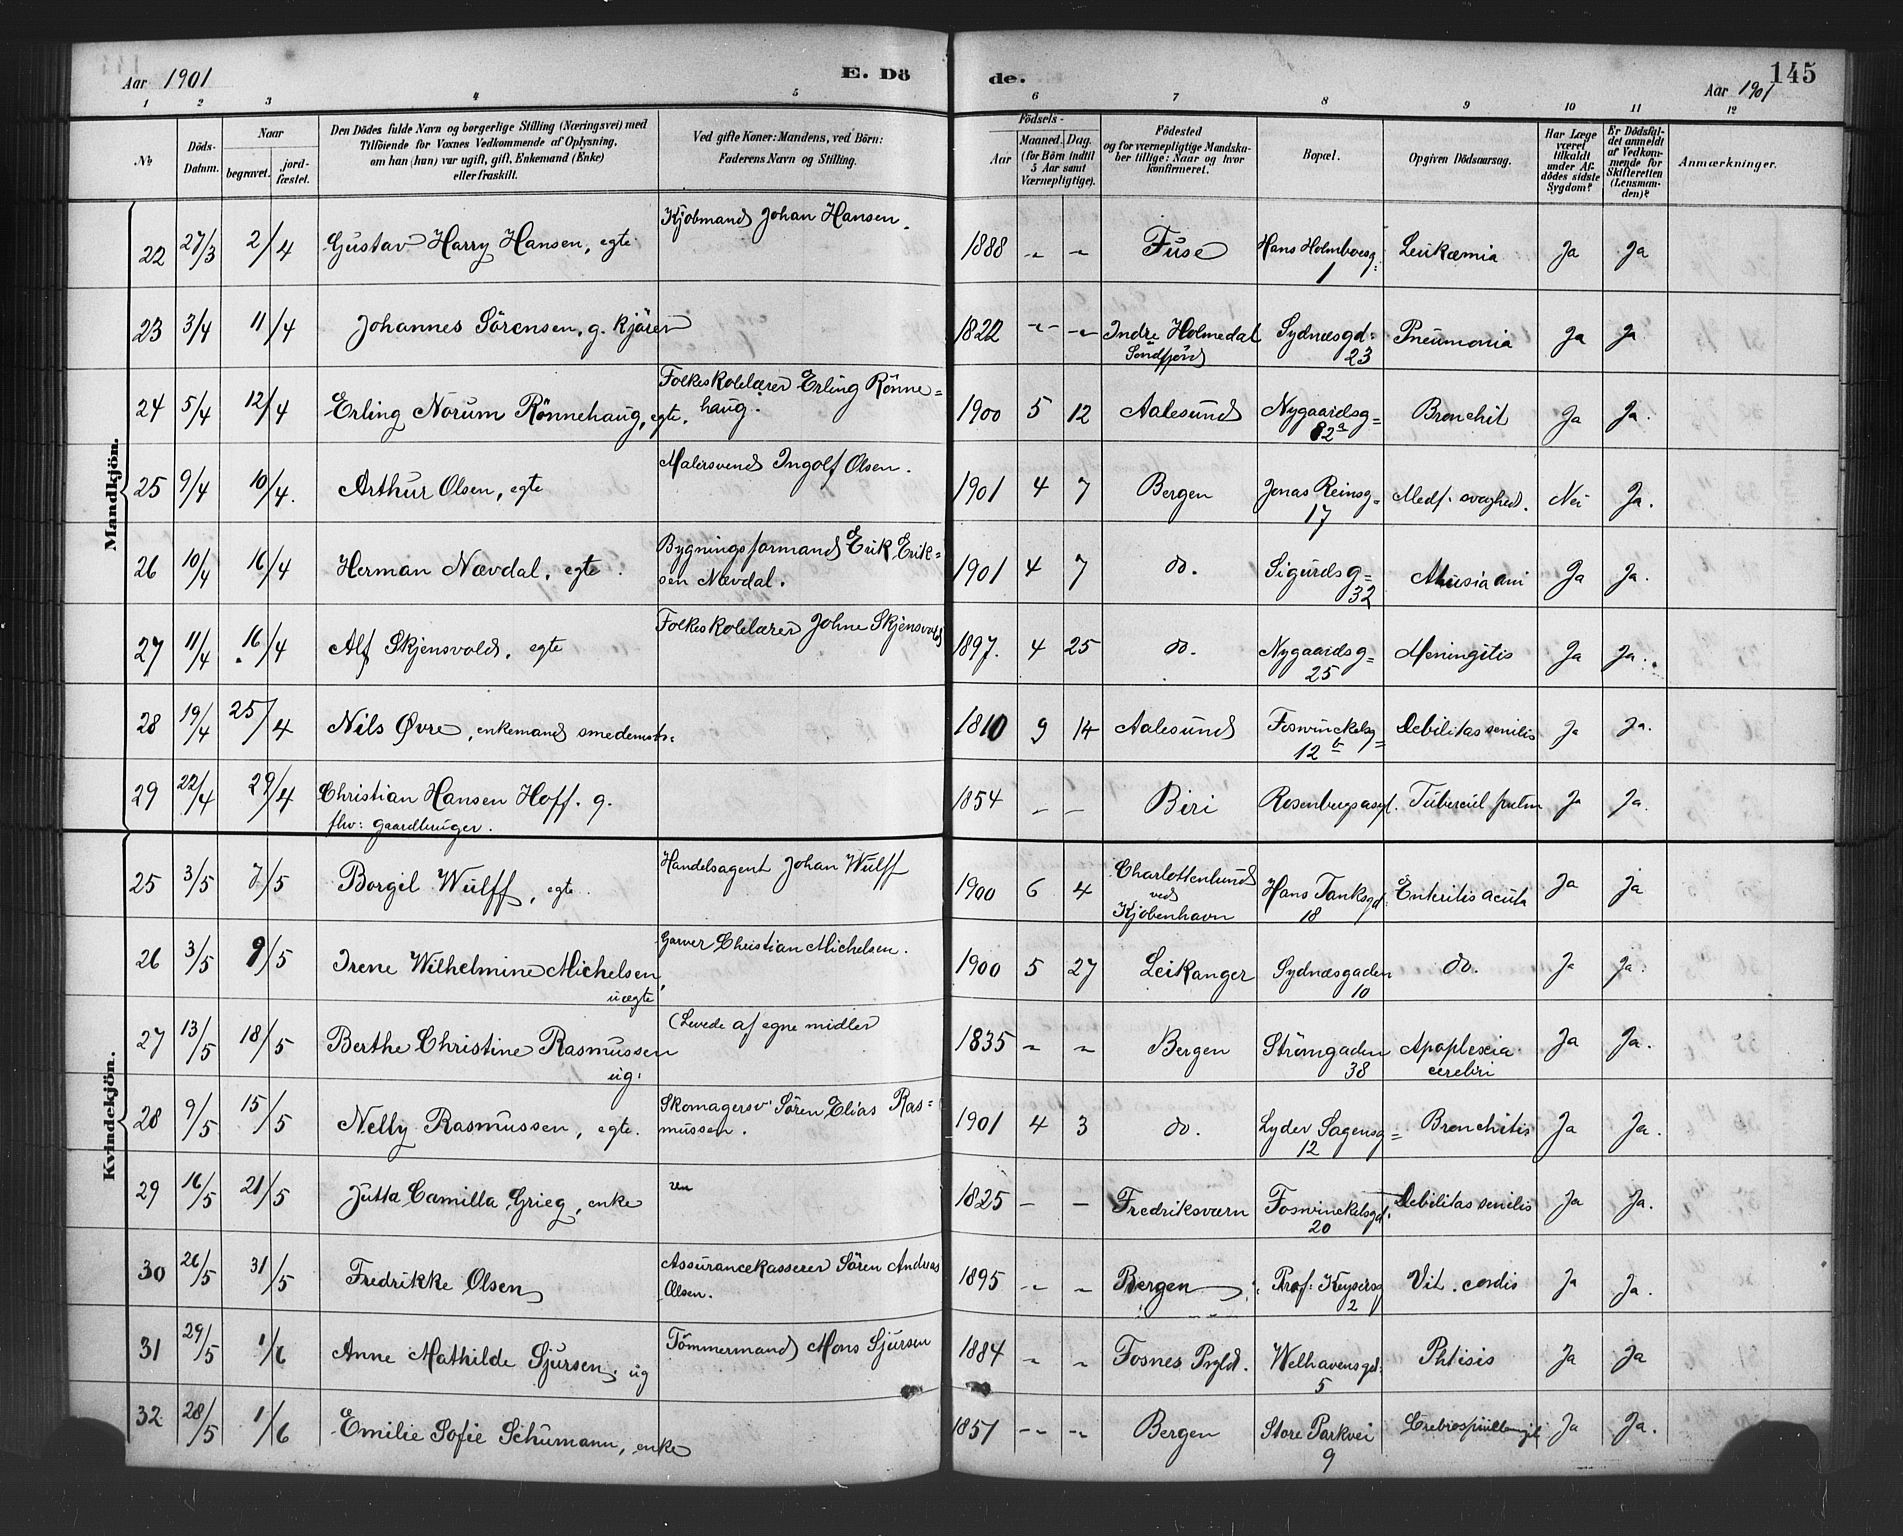 Aar 1901
E. Dö
de.
Aar 1901
145
1 2 3 4 5 6 7 8 9 10 11 12
No
Döds-Datum.
Naar
begravet.
jord-fæstet.
Den Dödes fulde Navn og borgerlige Stilling (Næringsvei) med
Tilföiende for Voxnes Vedkommende af Oplysning,
om han (hun) var ugift, gift, Enkemand (Enke)
eller fraskilt.
Ved gifte Koner: Mandens, ved Börn:
Faderens Navn og Stilling.
Födsels-
Aar
Maaned. Dag.
(for Börn indtil
5 Aar samt
Værnepligtige).
Födested
og for værnepligtige Mandska-
ber tillige: Naar og hvor
konfirmeret.
Bopæl.
Opgiven Dödsaarsag.
Har Læge
været
tilkaldt
under Af-
dödes sidste
Sygdom?
Er Dödsfal-
det anmeldt
af Vedkom-
mende for
Skifteretten
(Lensman-
den)?
Anmærkninger.
Mandkjön.
22 27/3 2/4 Gustav Harry Hansen, egte Kjöbmand Johan Hansen. 1888 " " Fuse Hans Holmboesg: 1 Leukæmia Ja Ja
23 3/4 11/4 Johannes Sörensen, g. kjörer 1822 " " Indre Holmedal Söndfjord Sydnæsgd: 23 Pneumonia Ja Ja
24 5/4 12/4 Erling Norum Rönnehaug, egte. Folkeskolelærer Erling Rönne=haug. 1900 5 12 Aalesund Nygaardsg= 82a Bronchit Ja Ja.
25 9/4 10/4. Arthur Olsen, egte Malersvend Ingolf Olsen. 1901 4 7 Bergen Jonas Reinsg= 17 Medf. svaghed. Nei Ja.
26 10/4 16/4 Herman Nævdal, egte. Bygningsformand Erik Erik=sen Nævdal. 1901 4 7 do. Sigurdsg= 32 ani Ja Ja.
27 11/4 16/4 Alf Skjensvold, egte Folkeskolelærer Johne Skjensvold 1897. 4 25 do. Nygaardsg= 25 Meningitis Ja Ja.
28 19/4 25/4 Nils Øvre, enkemand smedemst: 1810 9 14 Aalesund Foswinckelsg= 12b Debilitas senilis Ja Ja.
29 22/4 29/4 Christian Hansen Hoff. g. fhv: gaardbruger. 1854 – – Biri Rosenbergsasyl. Tubercul pulm Ja Ja.
Kvindekjön.
25 3/5 7/5 Borgil Wulff, egte. Handelsagent Johan Wulff 1900 6 4 Charlottenlund ved Kjöbenhavn Hans Tanksgd: 18 Enteritis acuta Ja Ja
26 3/5 9/5 Irene Wilhelmine Michelsen, uægte Garver Christian Michelsen. 1900 5 27 Leikanger Sydnæsgaden 10 do. Ja Ja.
27 13/5 18/5 Berthe Christine Rasmussen ug. (Levede af egne midler 1835 " " Bergen Strömgaden 38 Apoplexia cerebri Ja Ja.
28 9/5 15/5 Nelly Rasmussen, egte. Skomagersv. Sören Elias Ras=mussen. 1901 4 3 do. Lyder Sagensg= 12 Bronchitis Ja Ja.
29 16/5 21/5 Jutta Camilla Grieg, enke 1825 – – Fredriksværn Foswinckelsgd. 20 Debilitas senilis Ja Ja.
30 26/5 31/5 Fredrikke Olsen Assurancekasserer Sören Andreas Olsen. 1895 " " Bergen Prof: Keysersg 2 Vit. cordis Ja Ja.
31 29/5 1/6 Anne Mathilde Sjursen, ug Tömmermand Mons Sjursen 1884 " " Fosnes Prgld. Welhavensgd: 5 Phtisis Ja Ja
32 28/5 1/6 Emilie Sofie Schumann, enke 1851 " " Bergen Store Parkvei 9 Ja Ja.